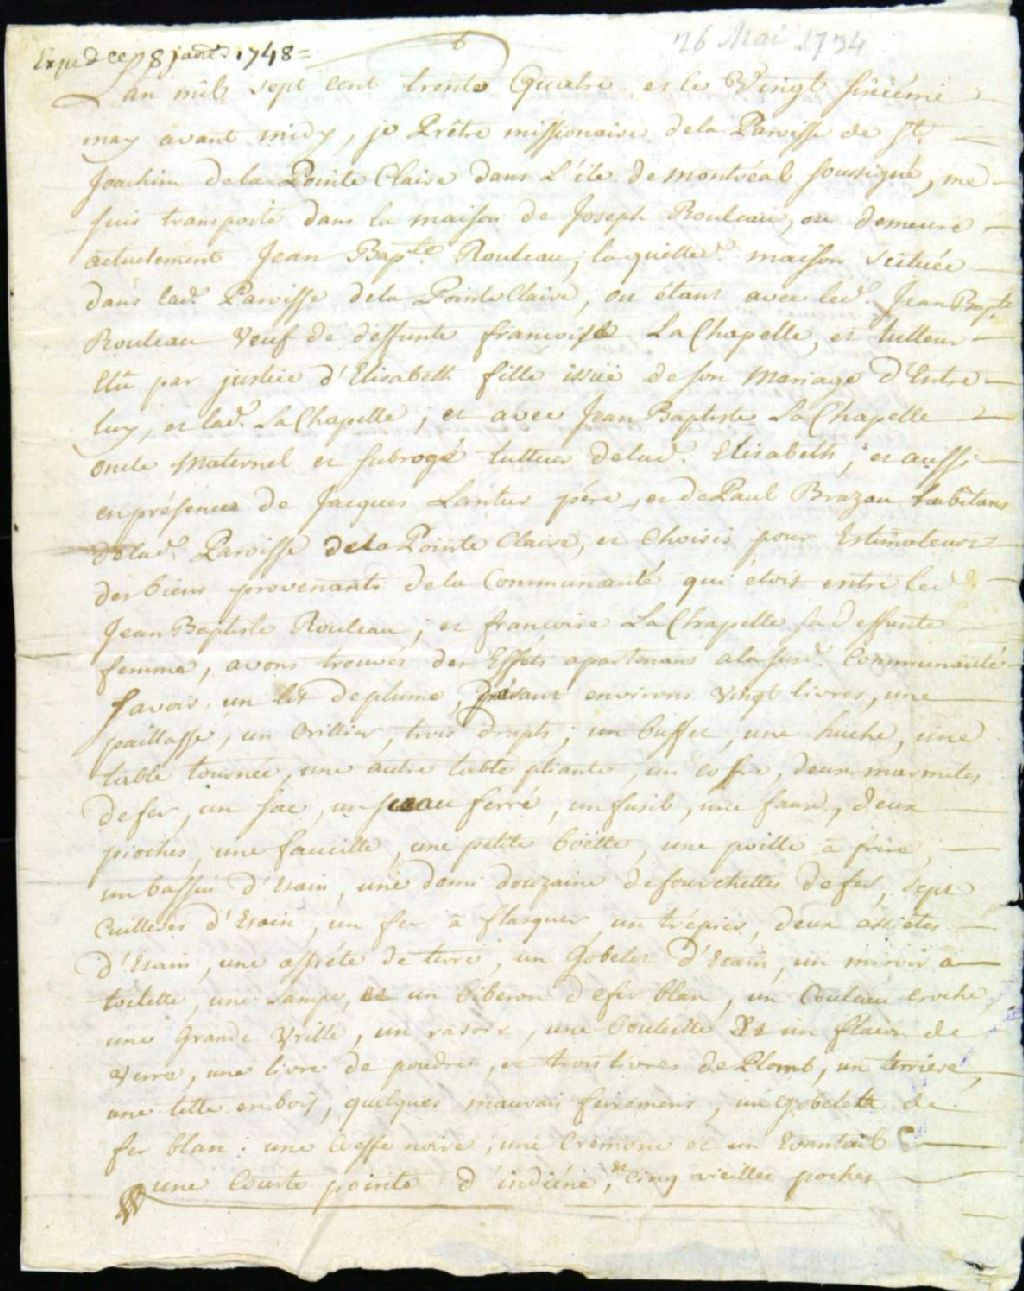 Exped ce 8 janv 1748 =
26 Mai 1734
L'an mil sept cent trente Quatre et le Vingt sixiéme
may avant midy, je Prêtre missionaire dela Paroisse de St.
Joachim dela Pointe Claire dans L'ile de montréal soussigné, me
suis transporté dans la maison de Joseph Rouleau, ou demeure
actuelement Jean Bapte. Rouleau; laquelle d. maison scituée
dans lad. Paroisse dela Pointe Claire, ou étant avec led. Jean Bapte
Rouleau Veuf de deffunte francoise La Chapelle, et tutteur
Elû par justice d'Elisabeth fille issüe de son Mariage d'Entre
luy, et lad. La Chapelle; et avec Jean Baptiste La Chapelle
oncle Maternel et subrogé tutteur delad. Elisabeth; et aussi
en présence de Jacques Lantier pére, et de Paul Brazau habitans
delad. Paroisse dela Pointe Claire, et Choisis pour Estimateurs
des biens provenants dela Communauté qui étoit entre led.
Jean Baptiste Rouleau, et françoise La Chapelle sa deffunte
femme, avons trouvés des Effets apartenans a la susd. Communauté
savoir, un lit de plume, pésant environs vingt livres, une
paillasse, un oriller, trois draps, un buffet, une huche, une
table tournée, une autre table pliante, un coffre, deux marmites
de fer, un sac, un seau ferré, un fusil, une faux, deux
pioches, une faucille, une petite boëtte, une poille à frire,
un bassin d'Etain, une demi douzaine de fourchettes de fer, sept
Cuilleres d'Etain, un fer à flasquer, un trépier, deux assiétes
d'Etain, une assiéte de terre, un Gobelet d'Etain, un miroir à
toilette, une Lampe, et un biberon de fer blan, un Couteau croche,
une Grande Vrille, un rasoir, une bouteille Et un flacon de
verre, une livre de poudre, et trois livres de Plomb, un terriere,
une tille en bois, quelques mauvais ferremens, un gobelet de
fer blan: une Coeffe noire, une Cremone et un Evantail
une Courte pointe d'indiéne, et Cinq vieilles poches